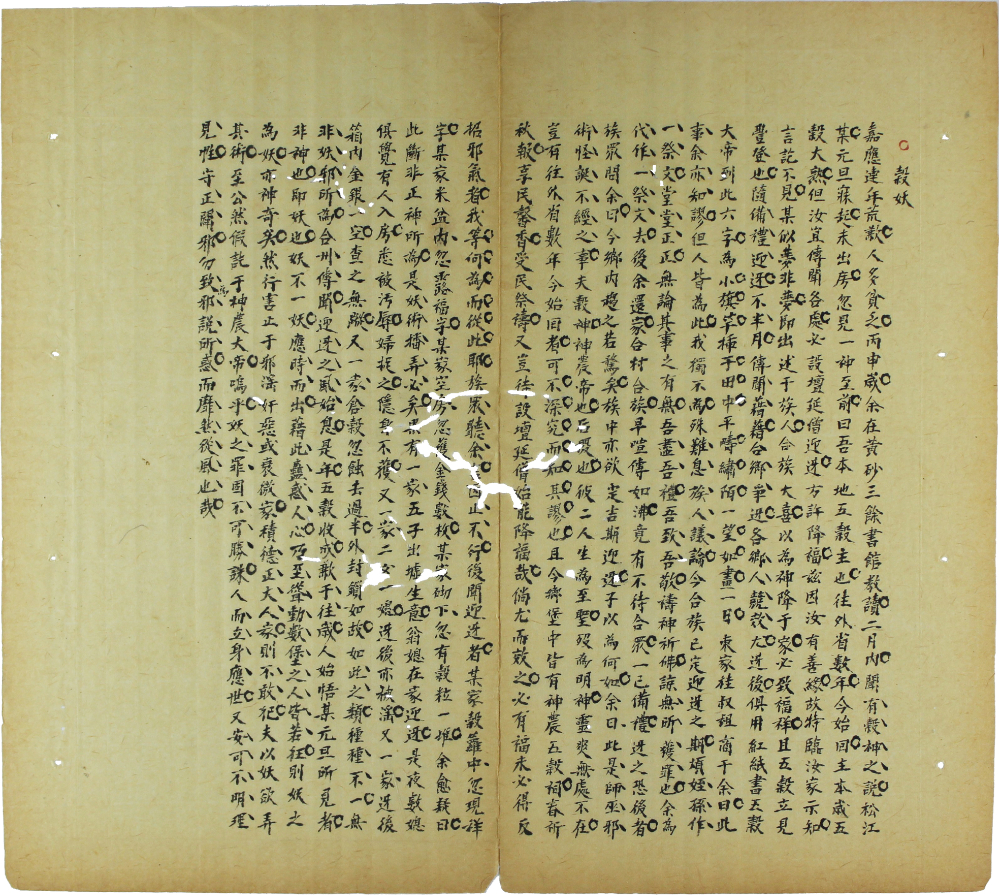 穀妖
嘉應連年荒歉人多貧乏丙申歲余在黃砂三餘書館教讀二月內聞有穀神之說松江
某元旦寐起未出房忽見一神至前曰吾本地五穀主也往外省數年今始回主本歲五
穀大熟但汝宜傳聞各處必設壇延僧迎迓方許降福茲因汝有善緣故特臨汝家示知
言訖不見某似夢非夢即出述于族人合族大喜以為神降于家必致福祥且五穀立見
豐登也隨備禮迎迓不半月傳聞藉藉合鄉爭迓各鄉人競效尤迓後俱用紅紙書五穀
大帝到此六字為小旗竿插于田中平疇繡陌一望如畫一日東家桂叔祖商于余曰此
事余亦知謬但人皆為此我獨不為殊難息族人議論今合族已定迎迓之期煩姪孫作
一祭文堂堂正正無論其事之有無吾盡吾禮吾致吾敬禱神祈佛諒無所獲罪也余為
代作一祭文去後余還家合村合族早喧傳如沸竟有不待合眾一已備禮迓之恐後者
族眾問余曰今鄉內趨之若騖矣族中亦欲定吉期迎迓子以為何如余曰此是師巫邪
術怪誕不經之事夫穀神神農帝也后稷也彼二人生為至聖歿為明神靈爽無處不在
豈有往外省數年今始回者可不深究而知其謬也且今鄉堡中皆有神農五穀祠春祈
秋報享民馨香受民祭禱又豈待設壇延僧始能降福哉倘尤而效之必有福未必得反
招邪氣者我等何為而從此耶族眾聽余言因止不行後聞迎迓者某家穀籮中忽現祥
字某家米盆內忽露福字某家空房忽獲金錢數枚某家砌下忽有穀粒一堆余愈疑曰
此斷非正神所為是妖術播弄必矣果有一家五子出墟生意翁媳在家迎迓是夜數媳
俱覺有人入房悉被污辱婦托之隱忍不獲又一家二女一媳迓後亦被淫又一家迓後
箱內金銀一空查之無蹤又一家倉穀忽蝕去過半外封鎖如故如此之類種種不一無
非妖邪所為合州傳聞迎迓之風始息是年五穀收成歉于往歲人始悟某元旦所見者
非神也即妖也妖不一妖應時而出藉此蠱惑人心乃至聳動數堡之人皆若狂則妖之
為妖亦神奇矣然行害止于邪淫奸惡或衰微家積德正大人家則不敢犯夫以妖欲弄
其術至公然假託于神農大帝嗚乎妖之罪固不可勝誅人而立身應世又安可不明理
見性守正闢邪勿致為邪說所惑而靡然從風也哉